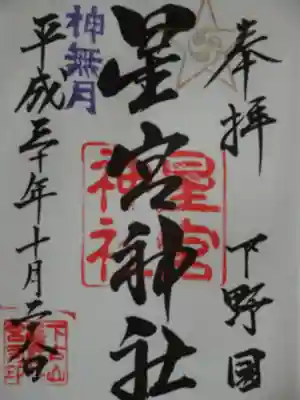 奉拝 下野国
星宮神社
星宮
神社
神無月
平成三十年十月二八日